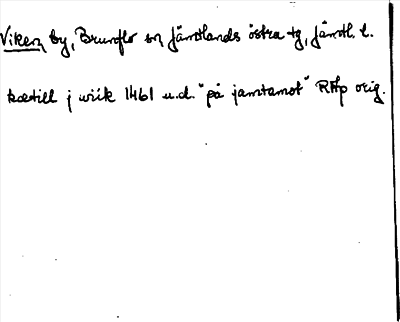 Viken by, Brunflo sn Jämtlands östra tg, Jämtl. l.
kætill j wiik 1461 u.d. "på jamtamot" RAp orig.